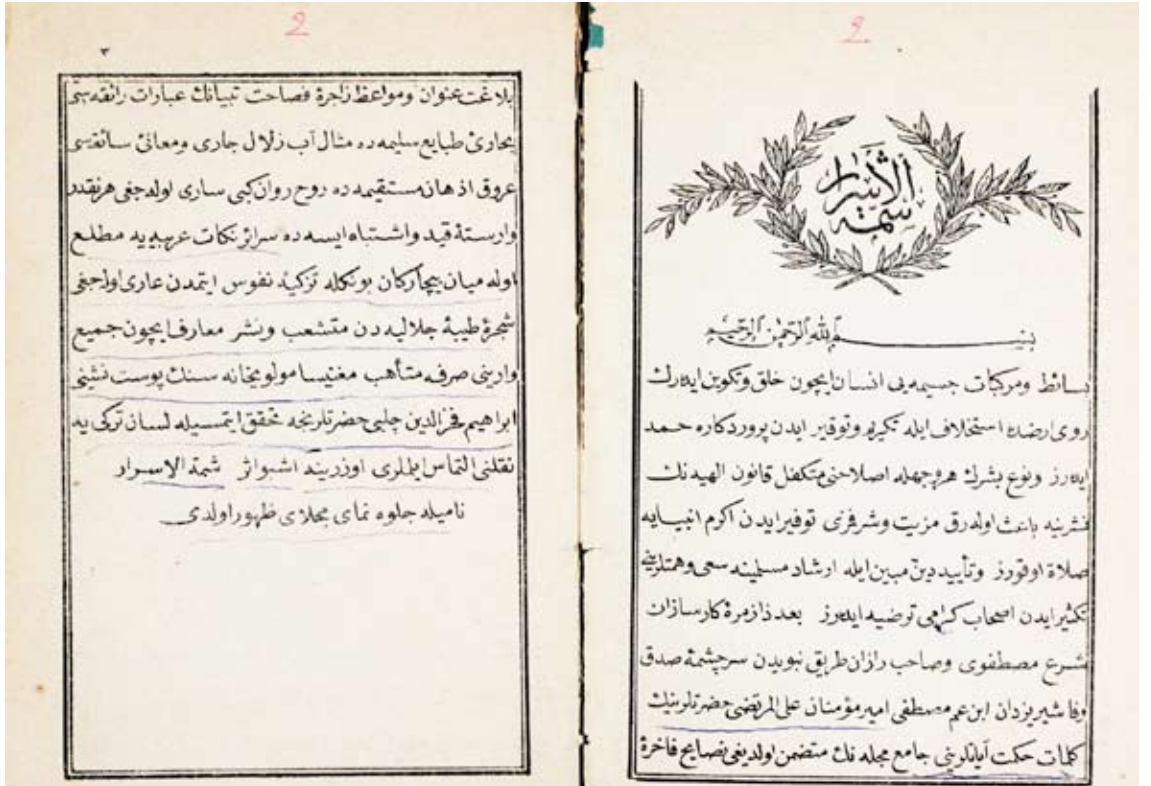 2
شمة الأسرار
بسم الله الرحمن الرحيم
بسائط ومركبات جسيمه يی انسان ايچون خلق وتكوين ايده رك
روی ارضده استخلاف ايله تكريم وتوقير ايدن پروردكاره حمد
ايده رز ونوع بشرك هر وجهله اصلاحنی متكفل قانون الهينك
نشرينه باعث اوله رق مزيت وشرفزی توفير ايدن اكرم انبيايه
صلاة اوقورز وتأييد دين مبين ايله ارشاد مسلمينه سعی وهمتلرينی
تكثير ايدن اصحاب كرامی ترضيه ايده رز بعد ذا زمرۀ كارسازان
شرع مصطفوی وصاحب رازان طريق نبويدن سرچشمۀ صدق
وفا شير يزدان ابن عم مصطفی امير مؤمنان علی المرتضی حضرتلرينك
كلمات حكمت آياتلرينی جامع مجله نك متضمن اولديغی نصايح فاخرۀ
2
٣
بلاغت عنوان ومواعظ زاجرۀ فصاحت تبيانك عبارات رائقه سی
مجاریٔ طبايع سليمه ده مثال آب زلال جاری ومعانیٔ سائقه سی
عروق اذهان مستقيمه ده روح روان كبی ساری اوله جغی هر نقدر
وارستۀ قيد واشتباه ايسه ده سرائر نكات عربيه يه مطلع
اوله ميان بيچاركان بونكله تزكيۀ نفوس ايتمدن عاری اوله جغی
شجرۀ طيبۀ جلاليه دن متشعب ونشر معارف ايچون جميع
وارينی صرفه متأهب مغنيسا مولويخانه سنك پوست نشينی
ابراهيم فخرالدين چلبی حضرتلرنجه تحقق ايتمسيله لسان تركی يه
نقلنی التماس ايملری اوزرينه اشبو اثر شمة الاسرار
ناميله جلوه نمای مجلای ظهور اولدی